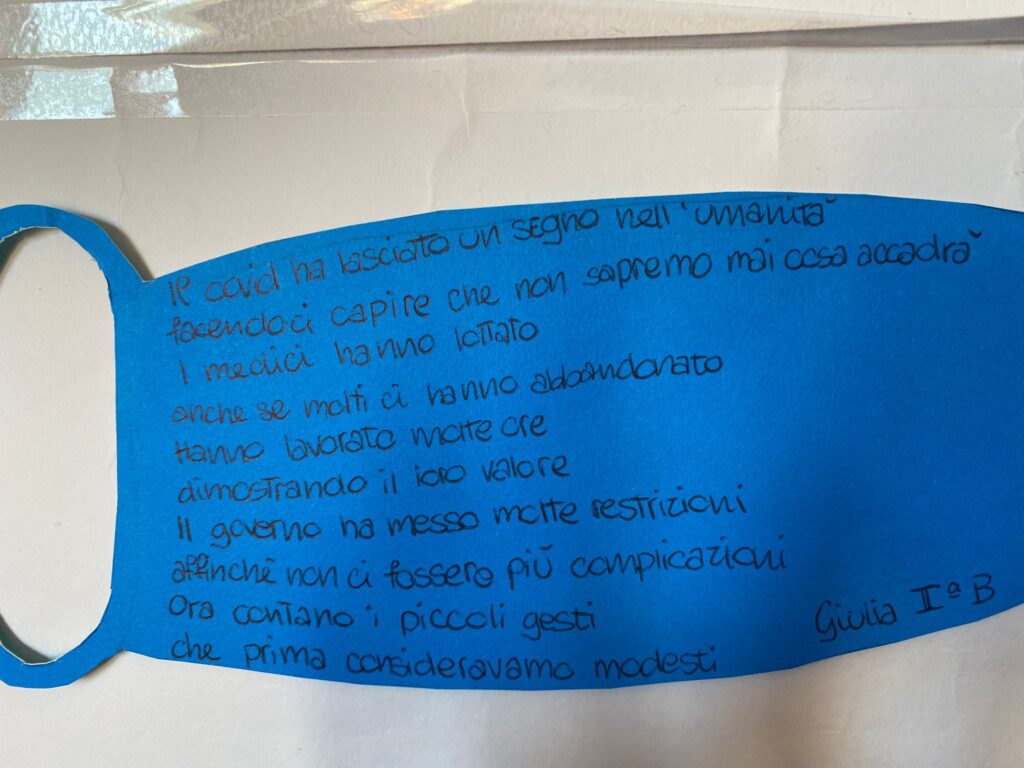 Il covid ha lasciato un segno nell'umanità
facendoci capire che non sapremo mai cosa accadrà
I medici hanno lottato
anche se molti ci hanno abbandonato
Hanno lavorato molte ore
dimostrando il loro valore
Il governo ha messo molte restrizioni
affinchè non ci fossero più complicazioni
Ora contano i piccoli gesti
che prima consideravamo modesti
Giulia Iª B